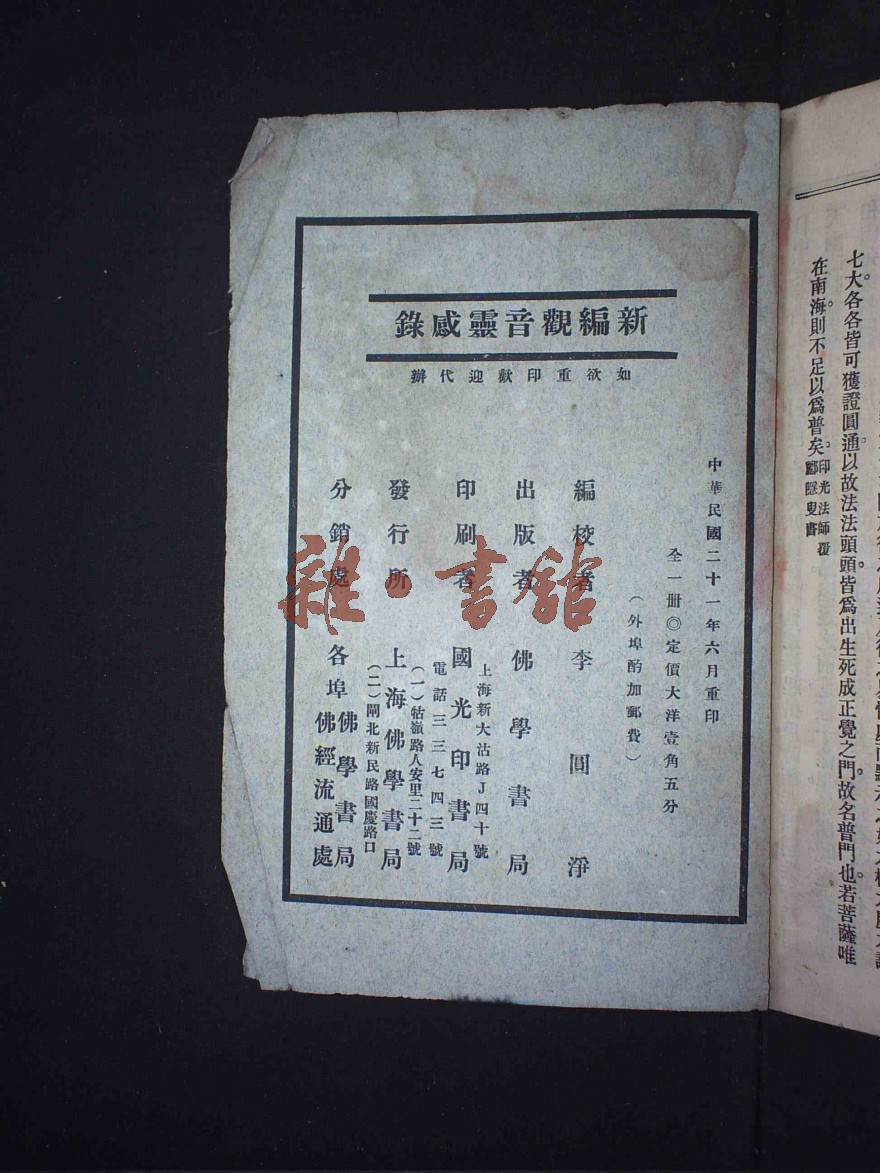 七大。各各皆可獲證圓通。以故法法頭頭。皆爲出生死成正覺之門。故名普門也。若菩薩唯
在南海。則不足以爲普矣。印光法師覆
酈隱叟書
新編觀音靈感錄
如欲重印歡迎代辦
中華民國二十一年六月重印
全一册◎定價大洋壹角五分
(外埠酌加郵費)
編校者 李圓淨
出版者 佛學書局
上海新大沽路J四十號
印刷者 國光印書局
電話三三七四三號
(一)牯嶺路人安里二十二號
發行所 上海佛學書局
(二)閘北新民路國慶路口
分銷處 各埠佛學書局
佛經流通處
雜·書館